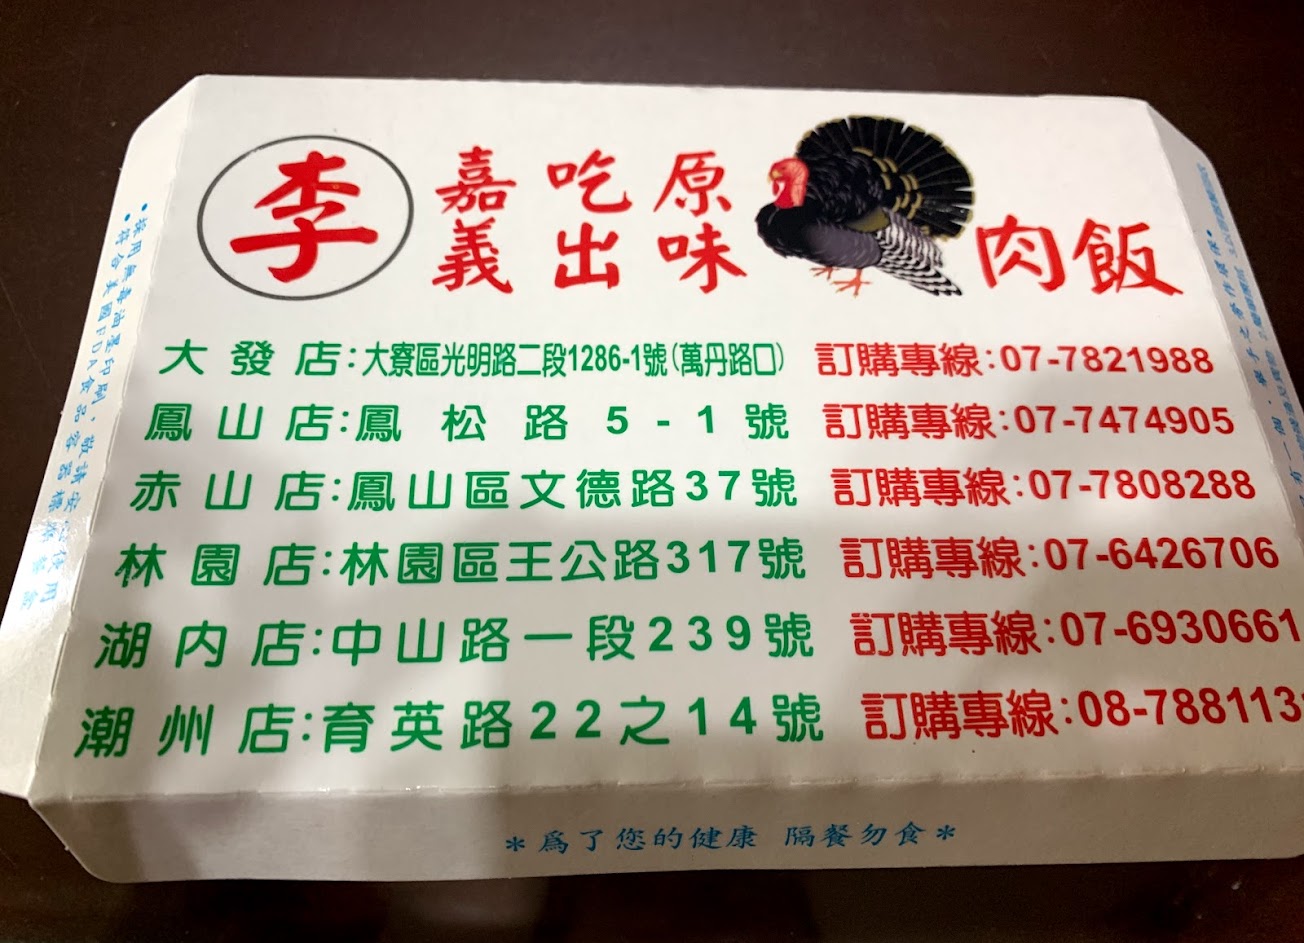 李 嘉義 吃出 原味 肉飯
大發店:大寮區光明路二段1286-1號(萬丹路口) 訂購專線:07-7821988
鳳山店:鳳松路5-1號 訂購專線:07-7474905
赤山店:鳳山區文德路37號 訂購專線:07-7808288
林園店:林園區王公路317號 訂購專線:07-6426706
湖內店:中山路一段239號 訂購專線:07-6930661
潮州店:育英路22之14號 訂購專線:08-788113
*為了您的健康 隔餐勿食*
•採用無毒油墨印刷,敬請安心使用
•符合美國FDA食品容器標準